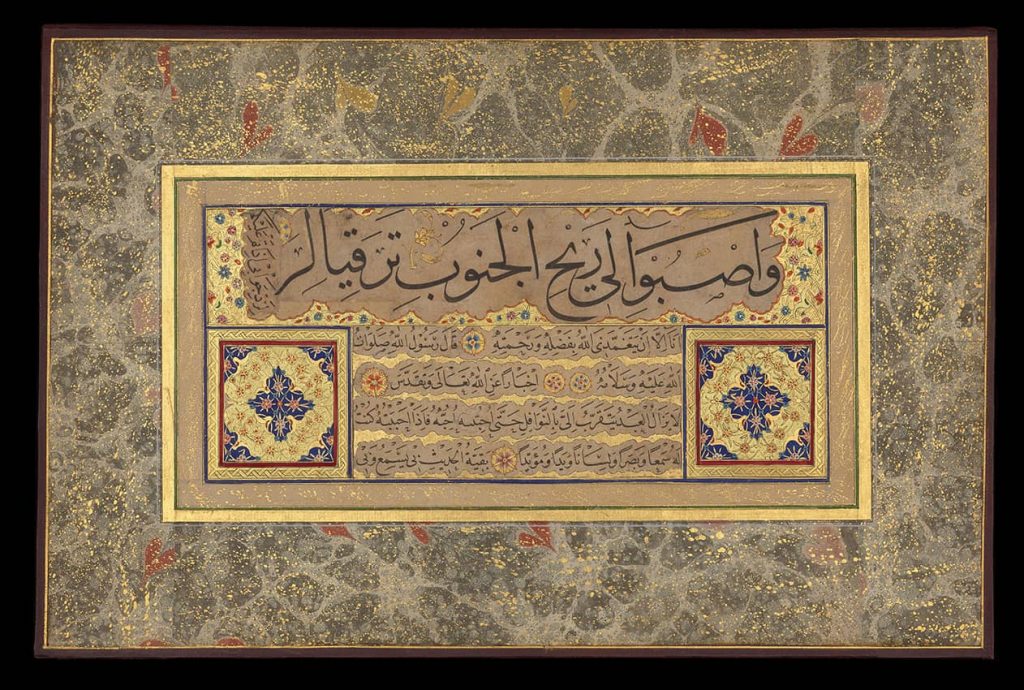 وَاصْبُوَا إِلَى رِيْحِ الْجَنُوبِ تَرَقِّيًا
أَنَا إِلَّا أَنْ يَتَغَمَّدَنِيَ اللهُ بِفَضْلِهِ وَرَحْمَتِهِ قَالَ رَسُولُ اللهِ صَلَوَاتُ
اللهِ عَلَيْهِ وَسَلَامُهُ إِخْبَارًا عَنِ اللهِ تَعَالَى وَتَقَدَّسَ
لَا يَزَالُ الْعَبْدُ يَتَقَرَّبُ إِلَىَّ بِالنَّوَافِلِ حَتَّى أُحِبَّهُ فَإِذَا أَحْبَبْتُهُ كُنْتُ
لَهُ سَمْعًا وَبَصَرًا وَلِسَانًا وَيَدًا وَمُؤَيِّدًا بَقِيَّةُ الْحَدِيثِ بِي يَسْمَعُ وَبِي